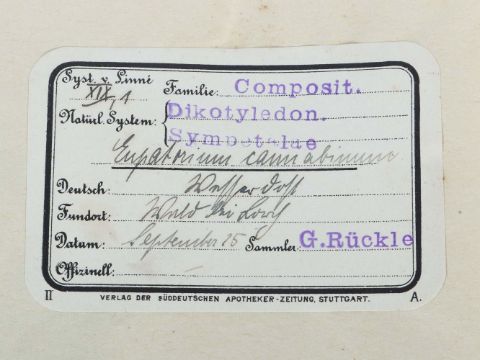 Syst. v. Linné
XIX,1
Familie: Composit.
Natürl. System: Dikotyledon.
Sympetalae
Eupatorium cannabinum
Deutsch: Wasserdost
Fundort: Wald bei
Datum: September 25 Sammler G. Rückle
Offizinell:
II VERLAG DER SÜDDEUTSCHEN APOTHEKER-ZEITUNG, STUTTGART. A.